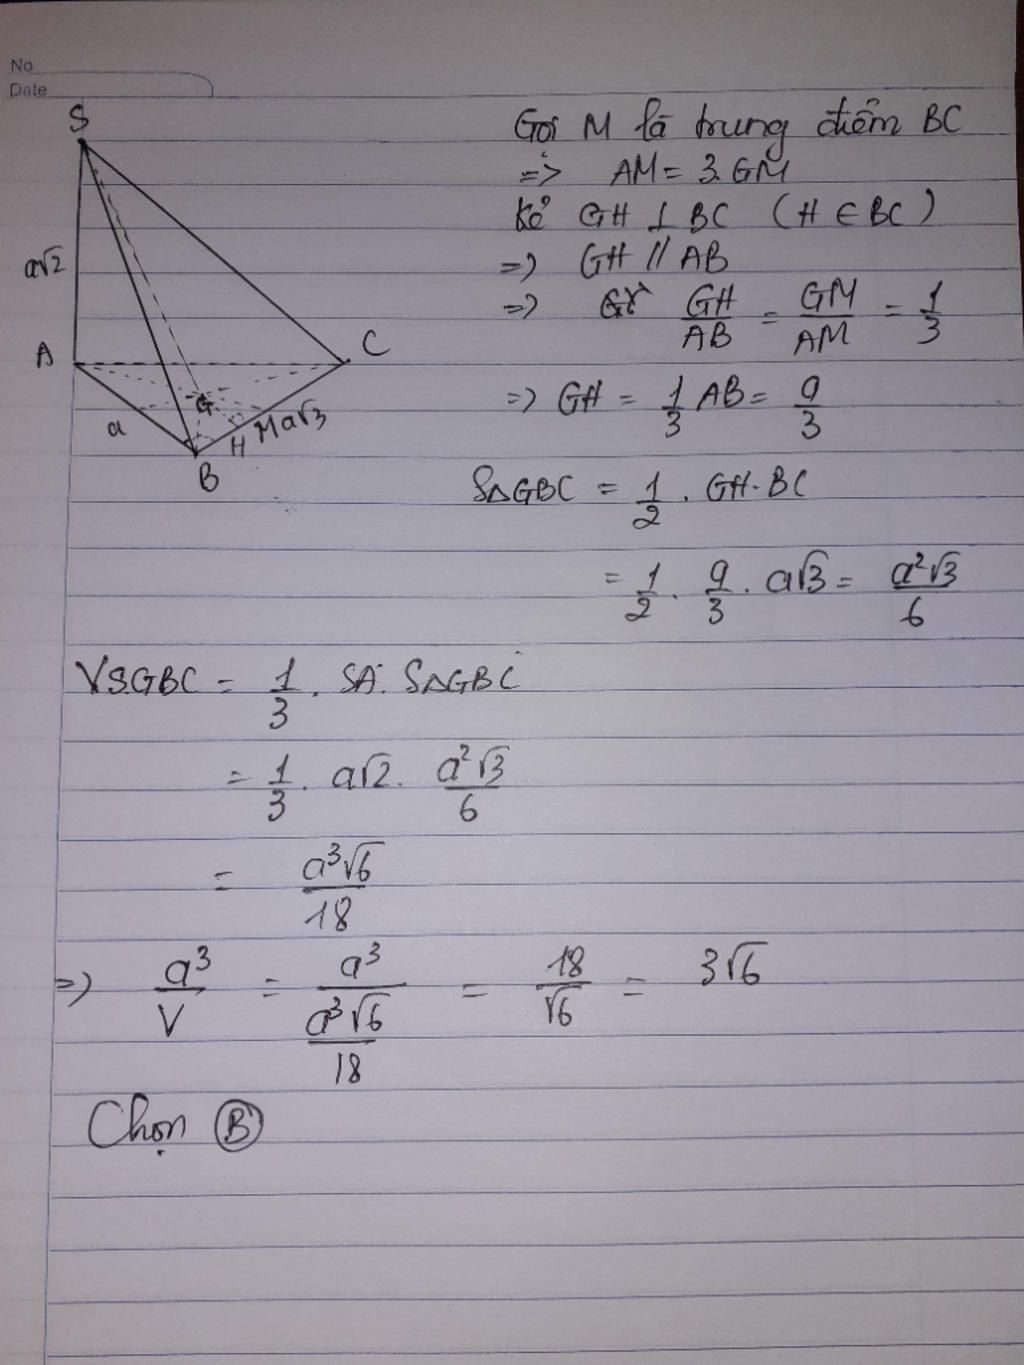 No
Date
S
a√2
A
C
G
a
H
M
a√3
B
Gọi M là trung điểm BC
=> AM = 3.GM
kẻ GH ⊥ BC (H ∈ BC)
=> GH // AB
=> GH/AB = GM/AM = 1/3
=> GH = 1/3 AB = a/3
S△GBC = 1/2 . GH.BC
= 1/2 . a/3 . a√3 = a²√3/6
VS.GBC = 1/3 . SA. S△GBC
= 1/3 . a√2 . a²√3/6
= a³√6/18
=> a³/V = a³/(a³√6/18) = 18/√6 = 3√6
Chọn B